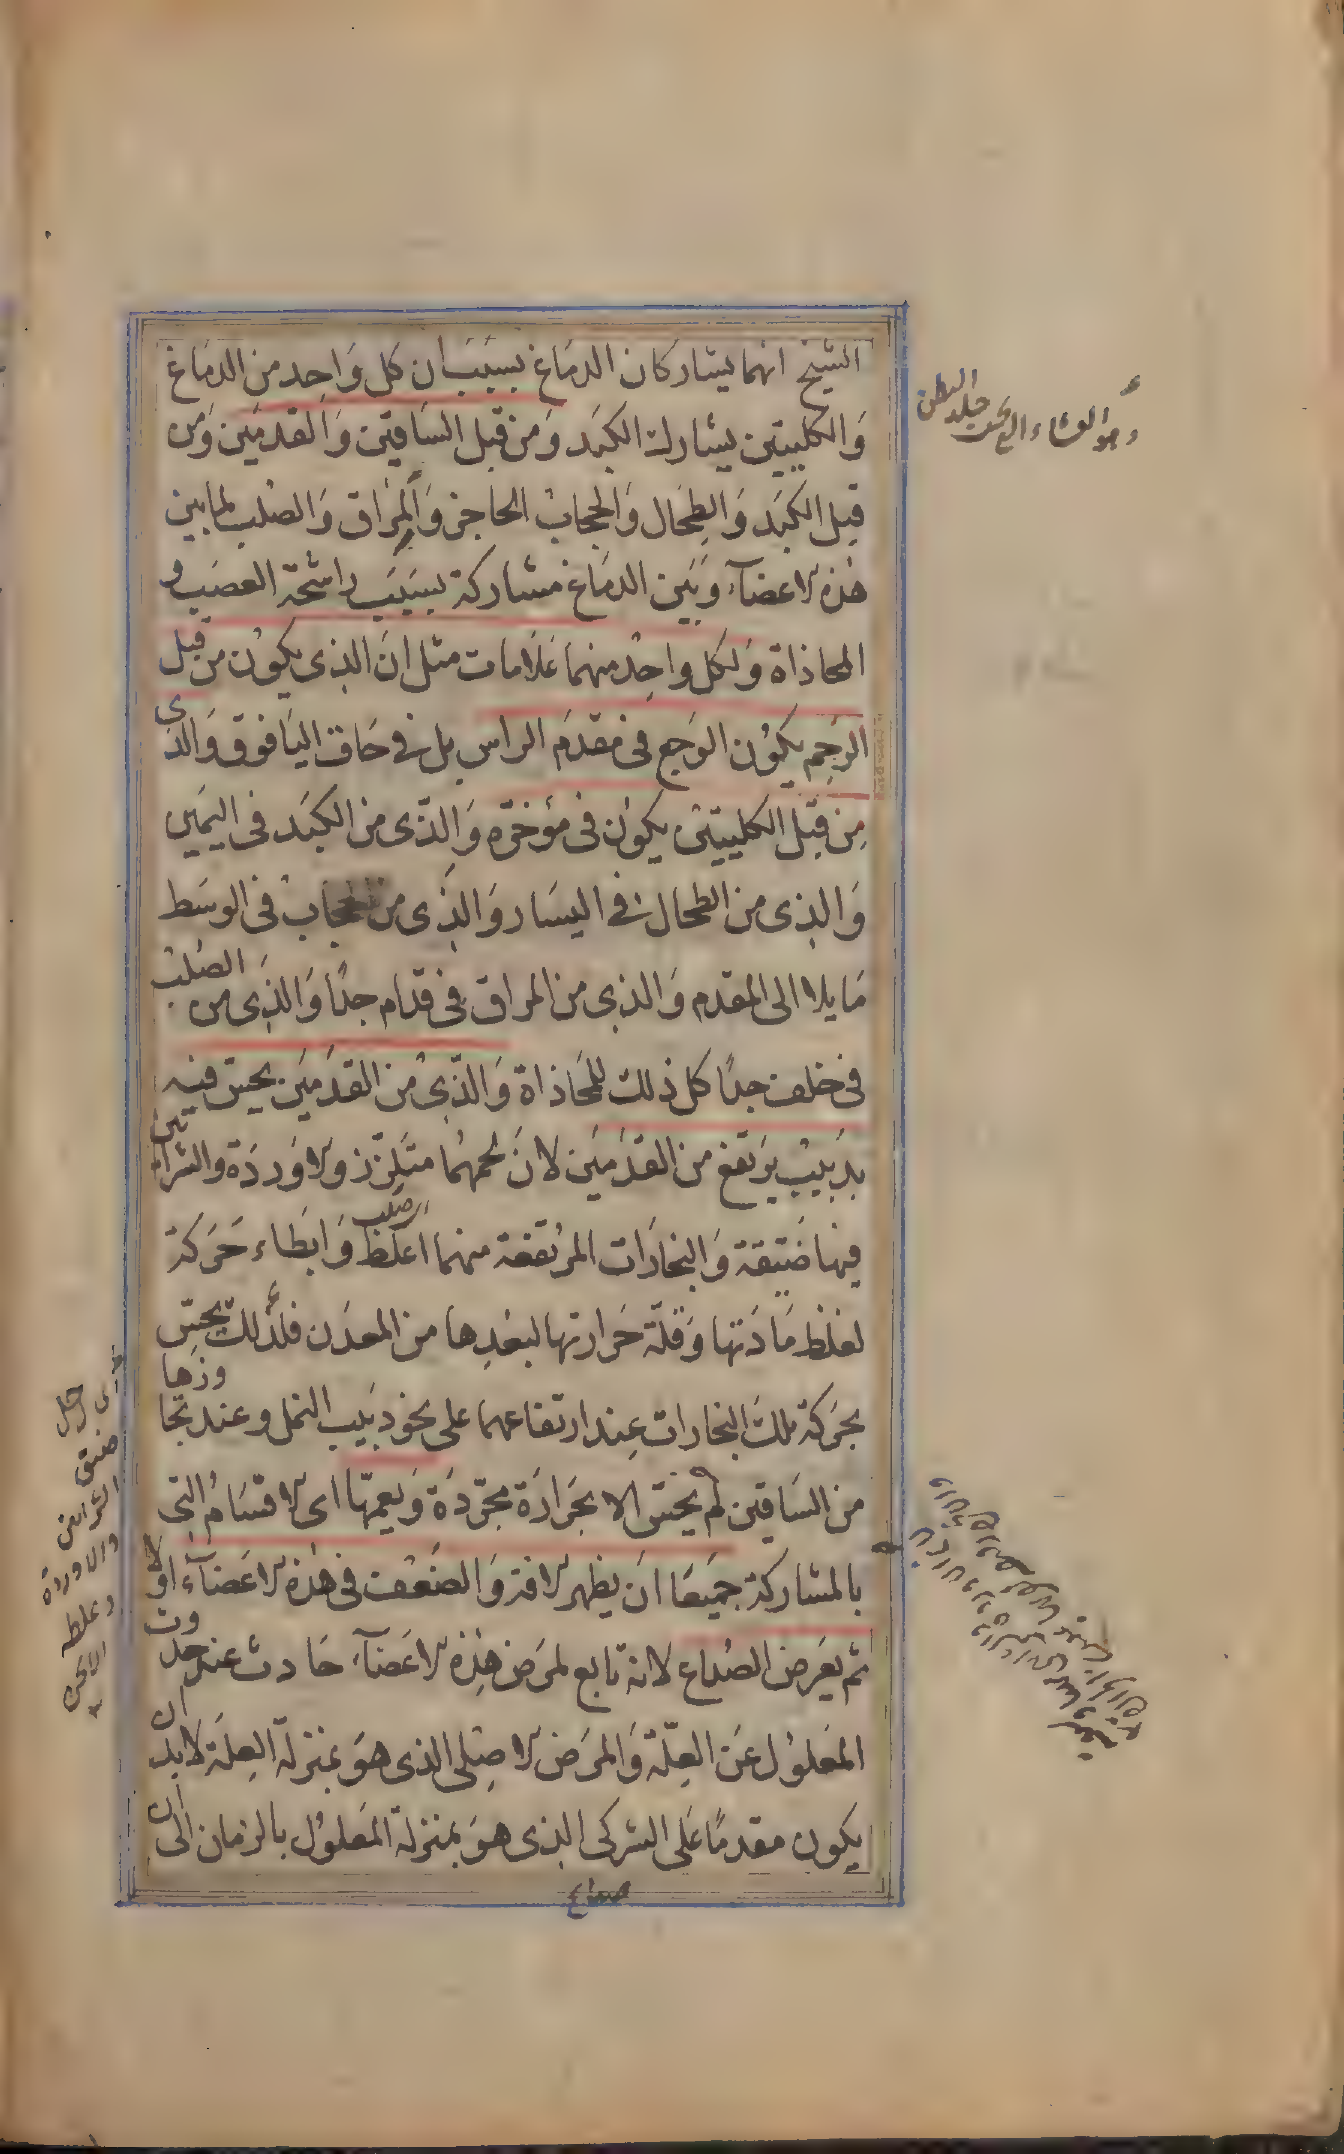 الشيخ انهما يشاركان الدماغ بسبب ان كل واحد من الدماغ
والكليتين يشارك الكبد ومن قبل الساقين والقدمين ومن
قبل الكبد والطحال والحجاب الحاجز والمراق والصلب لما بين
هذه الاعضاء وبين الدماغ مشاركة بسبب واشحة العصب و
المحاذاة ولكل واحد منهما علامات مثل ان الذى يكون من قبل
الرحم يكون الوجع فى مقدم الراس بل فى حاق اليافوق والذى
من قبل الكليتين يكون فى مؤخره والذى من الكبد فى اليمين
والذى من الطحال فى اليسار والذى من الحجاب فى الوسط
مايلا الى المقدم والذى من المراق فى قدام جدا والذى من الصلب
فى خلف جدا كل ذلك للمحاذاة والذى من القدمين يحس فيه
بدبيب يرتفع من القدمين لان لحمهما متلزز والاوردة والشرائين
فيها ضيقة والبخارات المرتفعة منهما اغلظ وابطاء حركة
لغلظ مادتها وقلة حرارتها لبعدها من المعدن فلذلك يحس
بحركة تلك البخارات عند ارتفاعهما على نحو دبيب النمل وعند تجاوزها
من الساقين لم يحس الا بحرارة مجردة ويعمها اى الاقسام التى
بالمشاركة جميعا ان يظهر الافة والضعف فى هذه الاعضاء اولا
ثم يعرض الصداع لانه تابع لمرض هذه الاعضاء حادث عند حدوث
المعلول عن العلة والمرض الاصلى الذى هو بمنزلة العلة لابد ان
يكون مقدما على الشركى الذى هو بمنزلة المعلول بالزمان الى ان
وهو الغشاء الذى تحت جلد البطن
ضيق
الشرايين
والاوردة
وغلظ